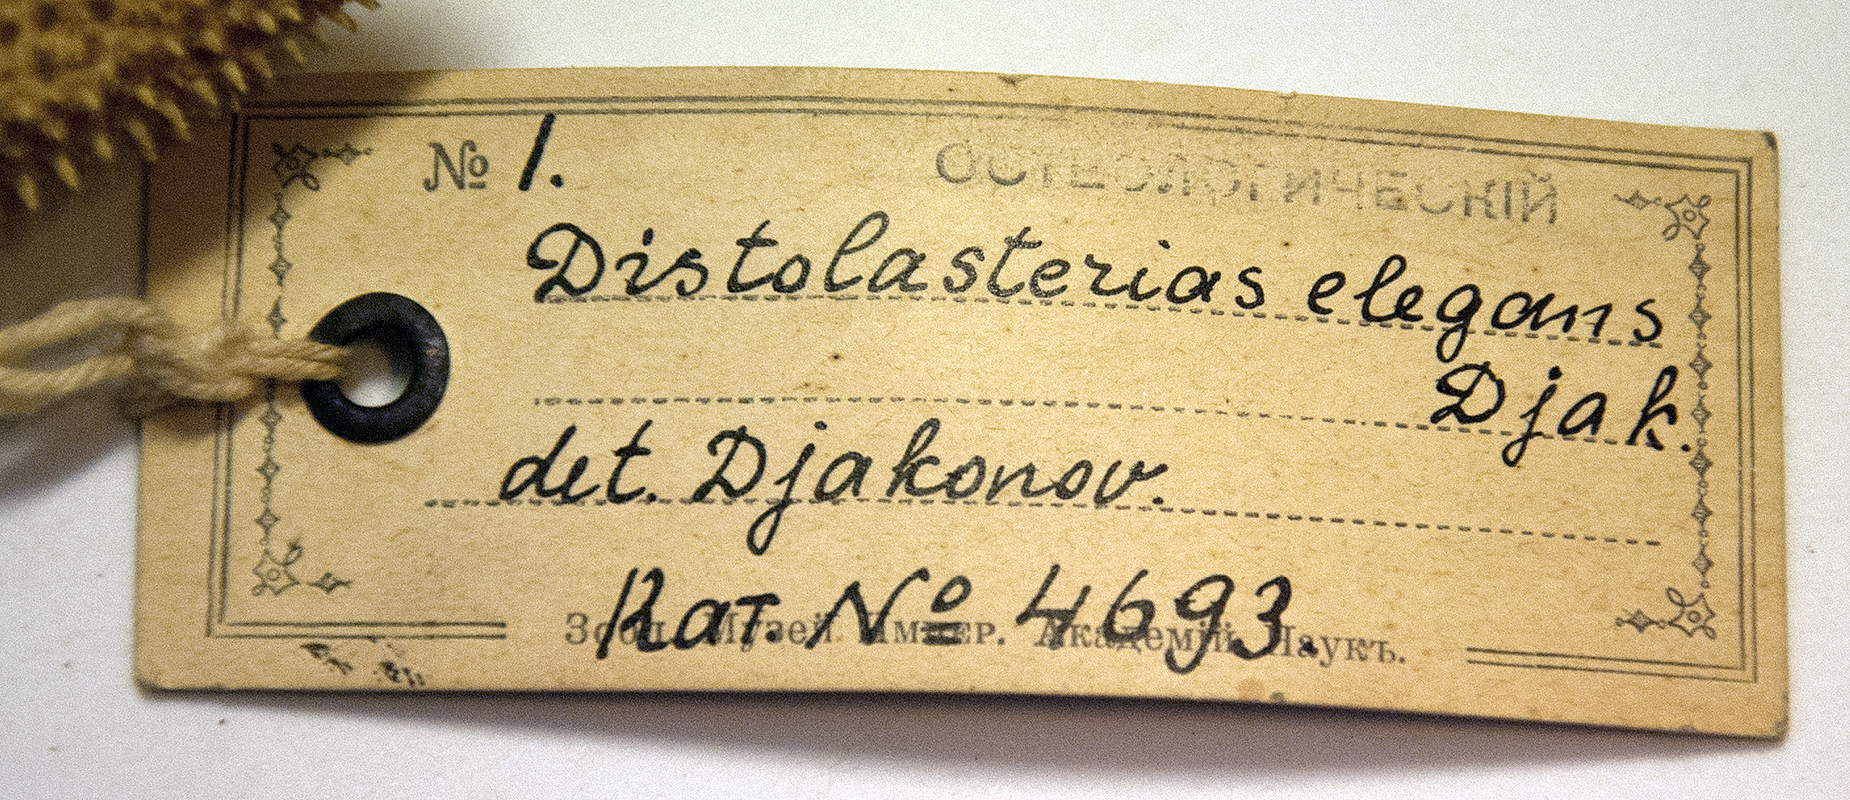 № 1.
ОСТЕОЛОГИЧЕСКІЙ
Distolasterias elegans
Djak.
det. Djakonov.
Кат. № 4693.
Зоол. Музей Импер. Академій Наукъ.